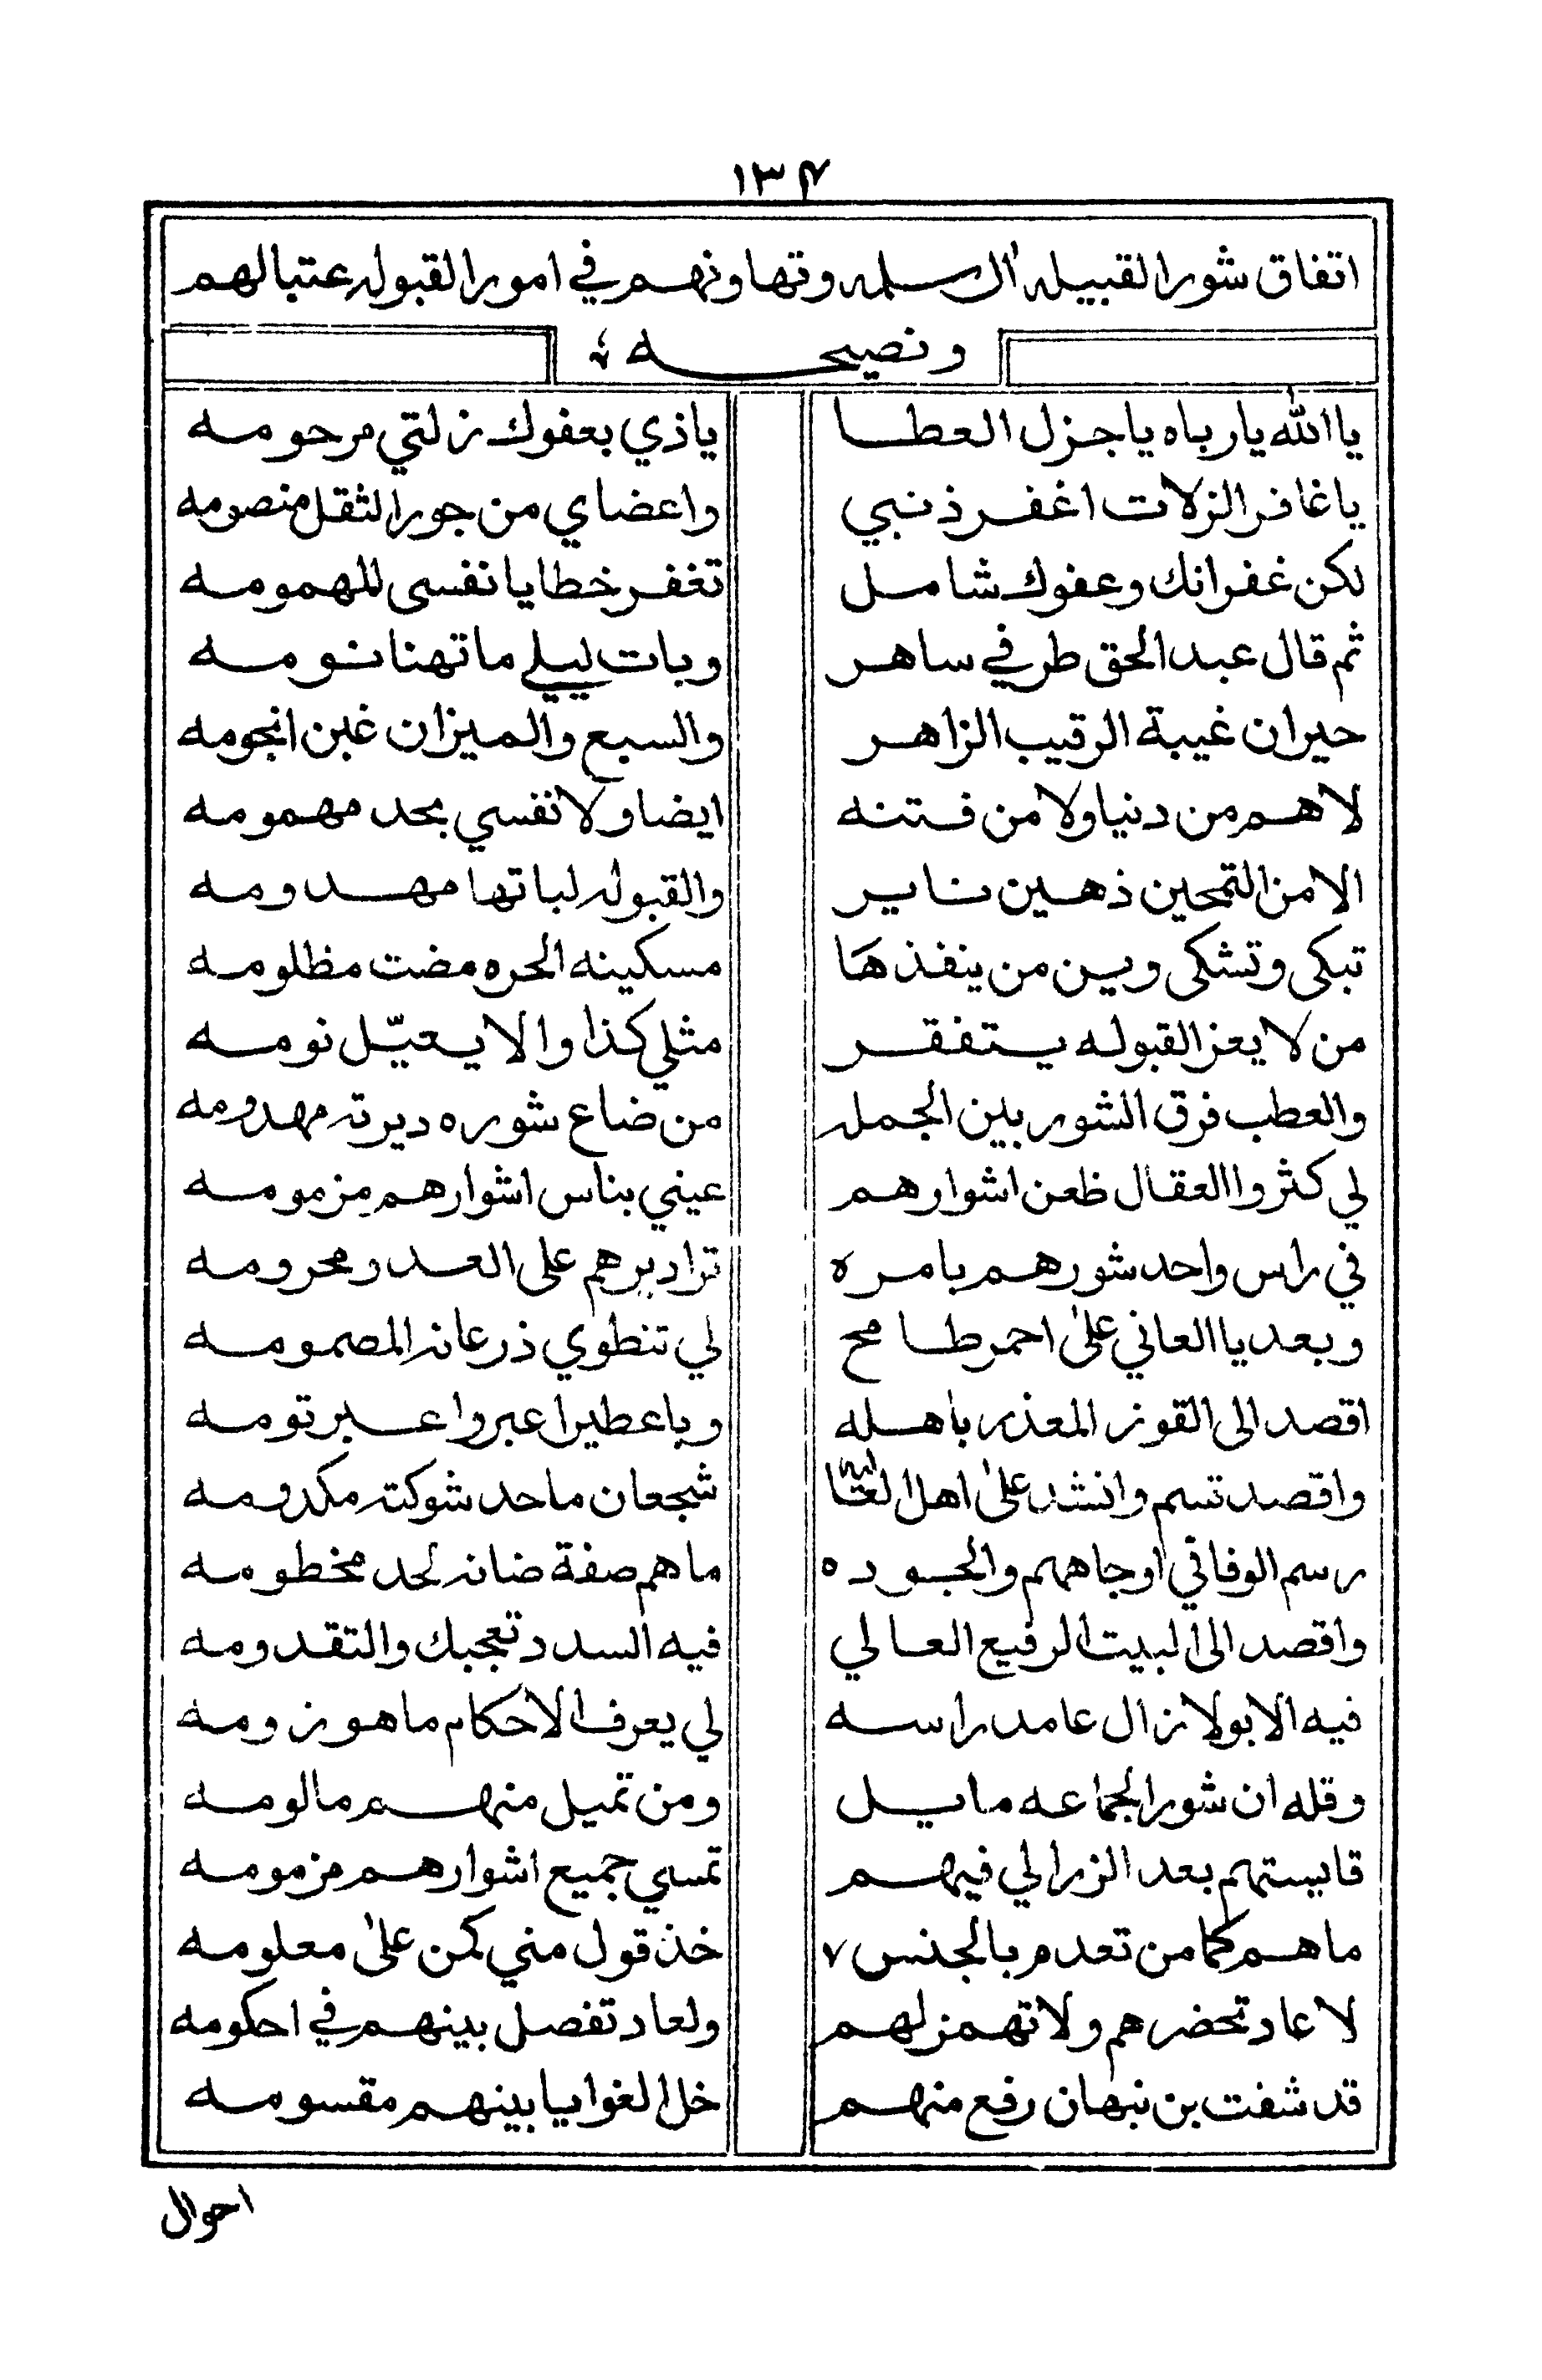 ١٣٤
اتفاق شور القبيله ال سلمه وتهاونهم في امور القبوله عتبا لهم
ونصيحه
يا الله يارباه ياجزل العطا ياذي بعفوك زلتي مرحومه
ياغافر الزلات اغفر ذنبي واعضاي من جور الثقل منصومه
لكن غفرانك وعفوك شامل تغفر خطايا نفسي للهمومه
ثم قال عبد الحق طرفي ساهر وبات ليلي ماتهنا نومه
حيران غيبة الرقيب الزاهر والسبع والميزان غبن انجومه
لاهم من دنيا ولا من فتنه ايضا ولا نفسي بحد مهمومه
الا من التمحين ذهين ناير والقبوله لباتها مهدومه
تبكي وتشكي وين من ينفذها مسكينه الحره مضت مظلومه
من لا يعز القبوله يستفقر مثلي كذا والا يعيّل نومه
والعطب فرق الشور بين الجمله من ضاع شوره ديرته مهدومه
لي كثروا العقال ظعن اشوارهم عيني بناس اشوارهم مزمومه
في راس واحد شورهم بامره ترا ديرهم على العدو محرومه
وبعد يا العاني على احمر طامح لي تنطوي ذرعانه المصمومه
اقصد الى القوز المعذر باهله وباعطير اعبر واعبر تومه
واقصد تسم وانشد على اهل شجعان ماحد شوكته مكدومه
رسم الوفا في اوجاههم والجوده ماهم صفة ضانه لحد مخطومه
واقصد الى البيت الرفيع العالي فيه السدد تعجبك والتقدومه
فيه الابو لازال عامد راسه لي يعرف الاحكام ماهو زومه
وقله ان شور الجماعه مايل ومن تميل منهم مالومه
قايستهم بعد الزرا لي فيهم تمسي جميع اشوارهم مزمومه
ماهم كما من تعدم بالجنس ٧ خذ قول مني كن على معلومه
لا عاد تحضرهم ولا تهمز لهم ولعاد تفصل بينهم في احكومه
قد شفت بن نبهان رفع منهم خل الغوايا بينهم مقسومه
احوال